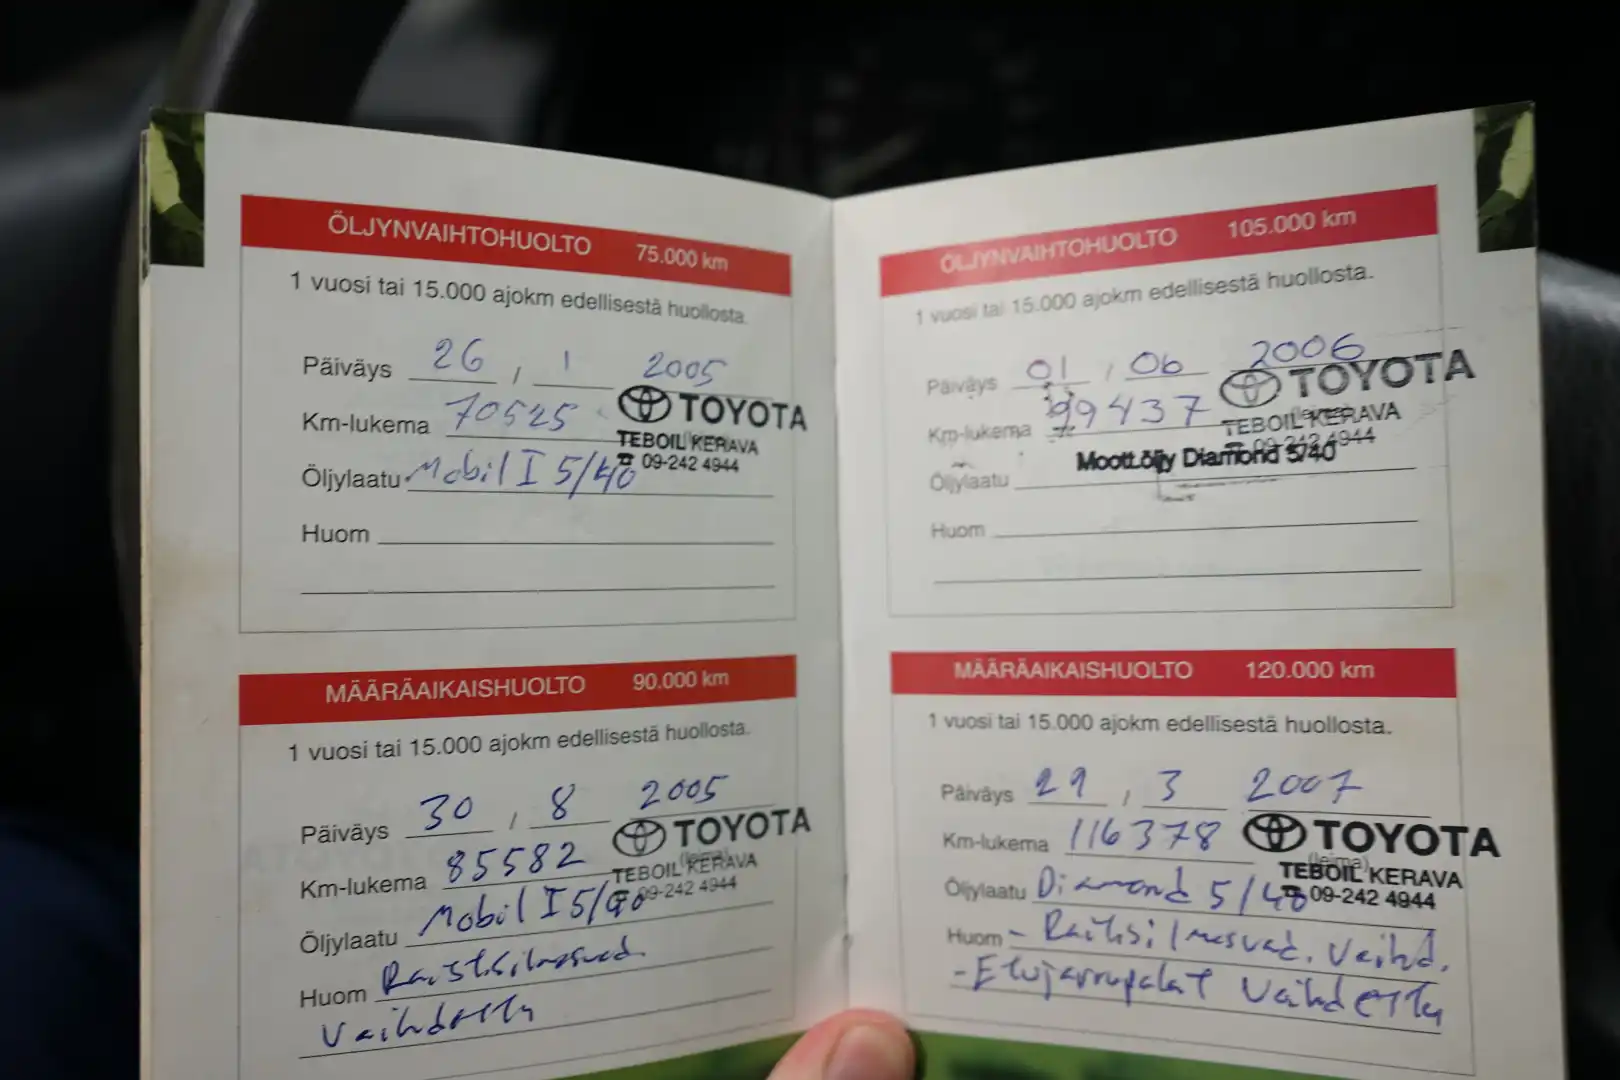 ÖLJYNVAIHTOHUOLTO 75.000 km
1 vuosi tai 15.000 ajokm edellisestä huollosta.
Päiväys 26 , 1 2005
Km-lukema 70525
TOYOTA
TEBOIL KERAVA
☎ 09-242 4944
Öljylaatu Mobil I 5/40
Huom
MÄÄRÄAIKAISHUOLTO 90.000 km
1 vuosi tai 15.000 ajokm edellisestä huollosta.
Päiväys 30 , 8 2005
Km-lukema 85582
TOYOTA
(leima)
TEBOIL KERAVA
☎ 09-242 4944
Öljylaatu Mobil I 5/40
Huom
Vaihdettu
ÖLJYNVAIHTOHUOLTO 105.000 km
1 vuosi tai 15.000 ajokm edellisestä huollosta.
Päiväys 01 , 06 2006
Km-lukema 99437
TOYOTA
(leima)
TEBOIL KERAVA
☎ 09-242 4944
Öljylaatu Moott.öljy Diamond 5/40
Huom
MÄÄRÄAIKAISHUOLTO 120.000 km
1 vuosi tai 15.000 ajokm edellisestä huollosta.
Päiväys 29 , 3 2007
Km-lukema 116378
TOYOTA
(leima)
TEBOIL KERAVA
☎ 09-242 4944
Öljylaatu Diamond 5/40
Huom - Vaihd.
- Etujarrupalat Vaihdettu